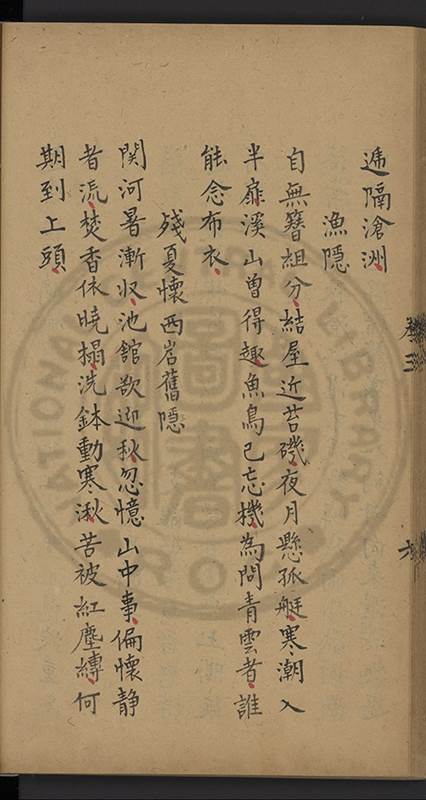 遞隔滄洲
漁隱
自無簪組分結屋近苔磯夜月懸孤艇寒潮入
半扉溪山曾得趣魚鳥已忘機為問青雲者誰
能念布衣
殘夏懷西岩舊隱
関河暑漸収池館欲迎秋忽憶山中事偏懷静
者流焚香依曉榻洗鉢動寒湫苦被紅塵縛何
期到上頭
卷三
六